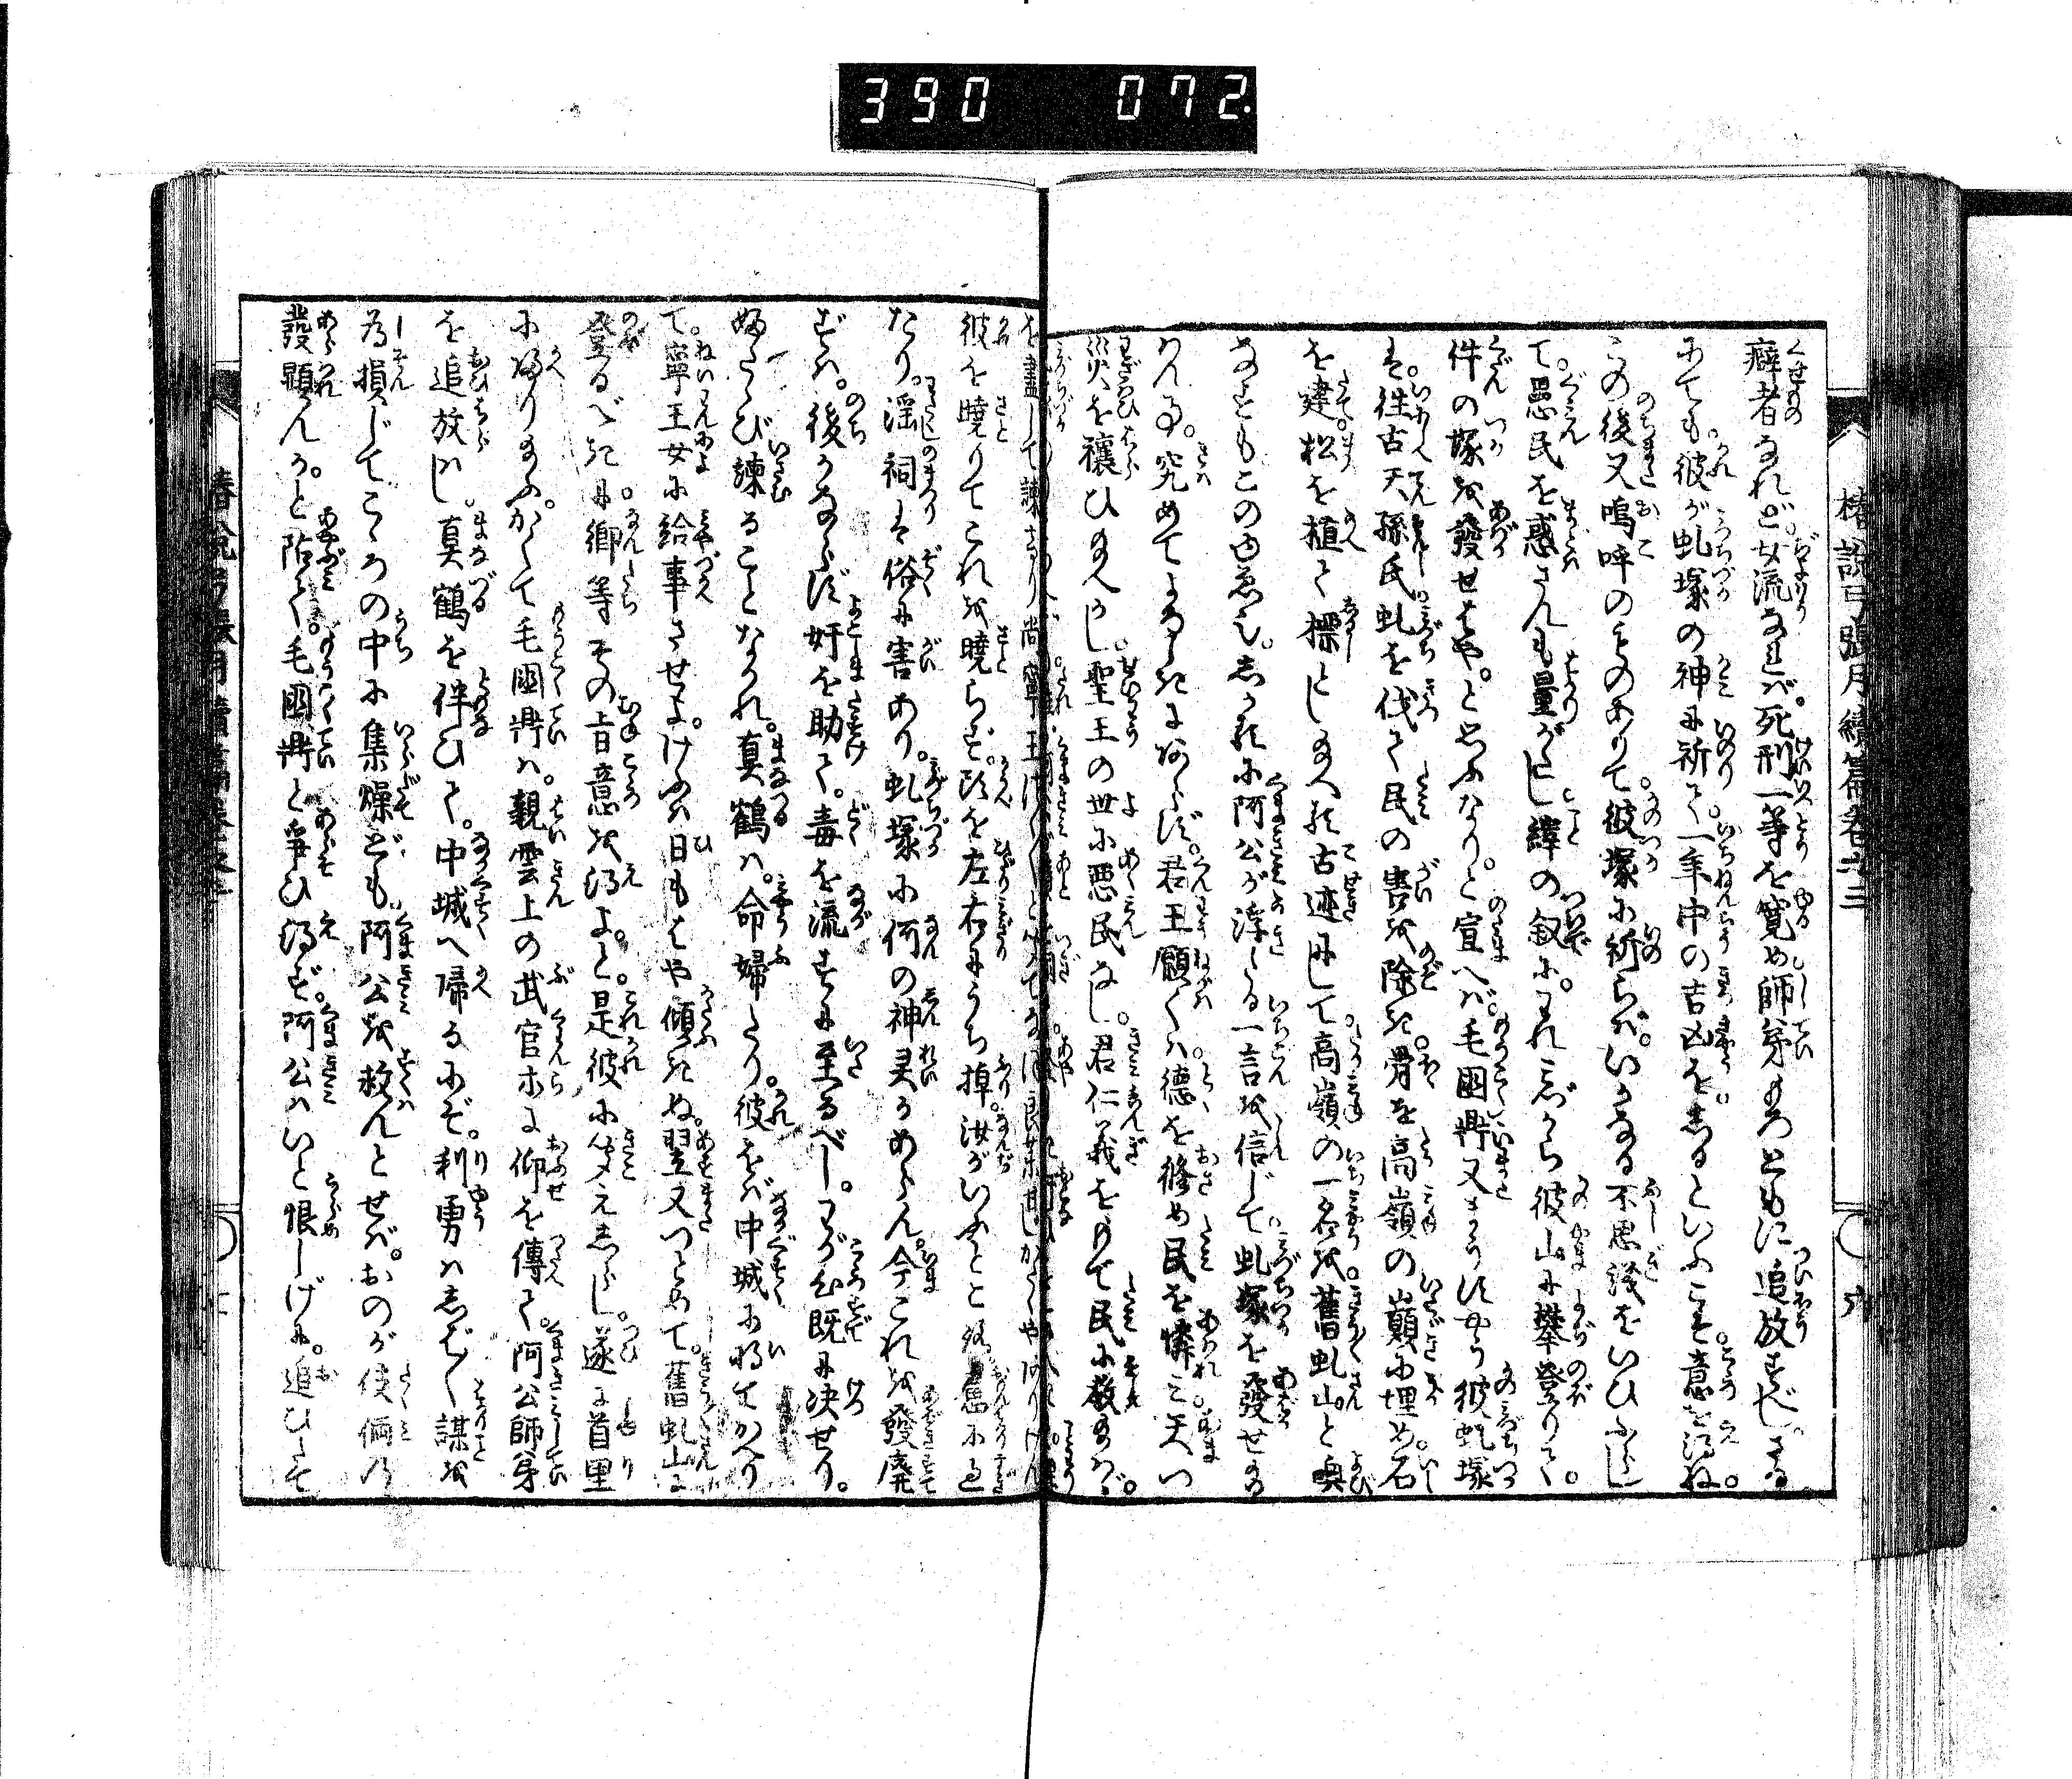 390 072.
椿説弓張月續篇卷之三
癖者なれど。女流なれば。死刑一等を寛め師弟もろともに追放すべし。さる
にても彼が虬塚の神に祈て。一年中の吉凶を。しるといふこそ意を得ね。
この後又嗚呼のものありて。彼塚に祈らば。いかなる不思議をいひふらし
て。愚民を惑さんも量がたし。縡の叙に。われみづから彼山に攀登りて。
件の塚を發せばや。と思ふなり。と宣へば。毛國鼎又まうすやう彼虬塚
は。往古天孫氏虬を伐て民の害を除き。骨を高嶺の巓に埋め。石
を建。松を植て標としまへる古迹にして。高嶺の一名を舊虬山と喚
なすもこの由ゑ也。しかるに阿公が浮たる一言を信じて。虬塚を發せ給
はん事。究めてよろしきにあらず。君王願くは。徳を脩め民を憐み。天つ
災を禳ひ給へかし。聖王の世に悪民なし。君仁義をもて民に教給はゞ。
を盡して諫まうり尚寧王
彼を曉りてこれを曉らず。頭を左右にうち掉。汝がいふところ
たり。淫祠は俗に害あり。虬塚に何の神灵かあらん。今これを發廃
ずは。後かならず奸を助て。毒を流すに至るべし。わが心既に决せり。
ふたゝび諫ることなかれ。真鶴は。命婦たり。彼をば中城に将てかへり
て。寧王女に給事させよ。けふは日もはや傾きぬ。翌又つとめて。舊虬山に
登るべきに。卿等その旨意を得よ。と。是彼に聞えしらし。遂に首里
に帰り給ふ。かくて毛國鼎は。親雲上の武官ホに仰を傳て。阿公師弟
を追放はし。真鶴を伴ひて。中城へ帰るにぞ。利勇はしば〳〵謀を
為損じてこゝろの中に集燥ども。阿公を救んとせば。おのが伎倆の
發顕んか。と阽て。毛國鼎と爭ひ得ず。阿公はいと恨しげに。追ひたて